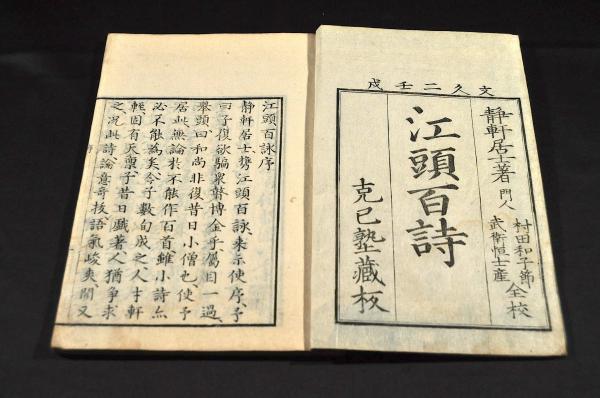 文久二壬戌
靜軒居士著
門人 村田和子節
武衛恒士産
全校
江頭百詩
克己塾藏板
江頭百詠序
靜軒居士携江頭百詠来示使序予
曰子復欲騙衆瞽博金乎屬目一過
舉頭曰和尚非復昔日小僧也使予
居此無論於不能作百首雖小詩亦
必不能為矣今子數旬成之人才軒
輊固有天禀子昔日戯著人猶争求
之况此詩論意奇抜語氣峻爽間又